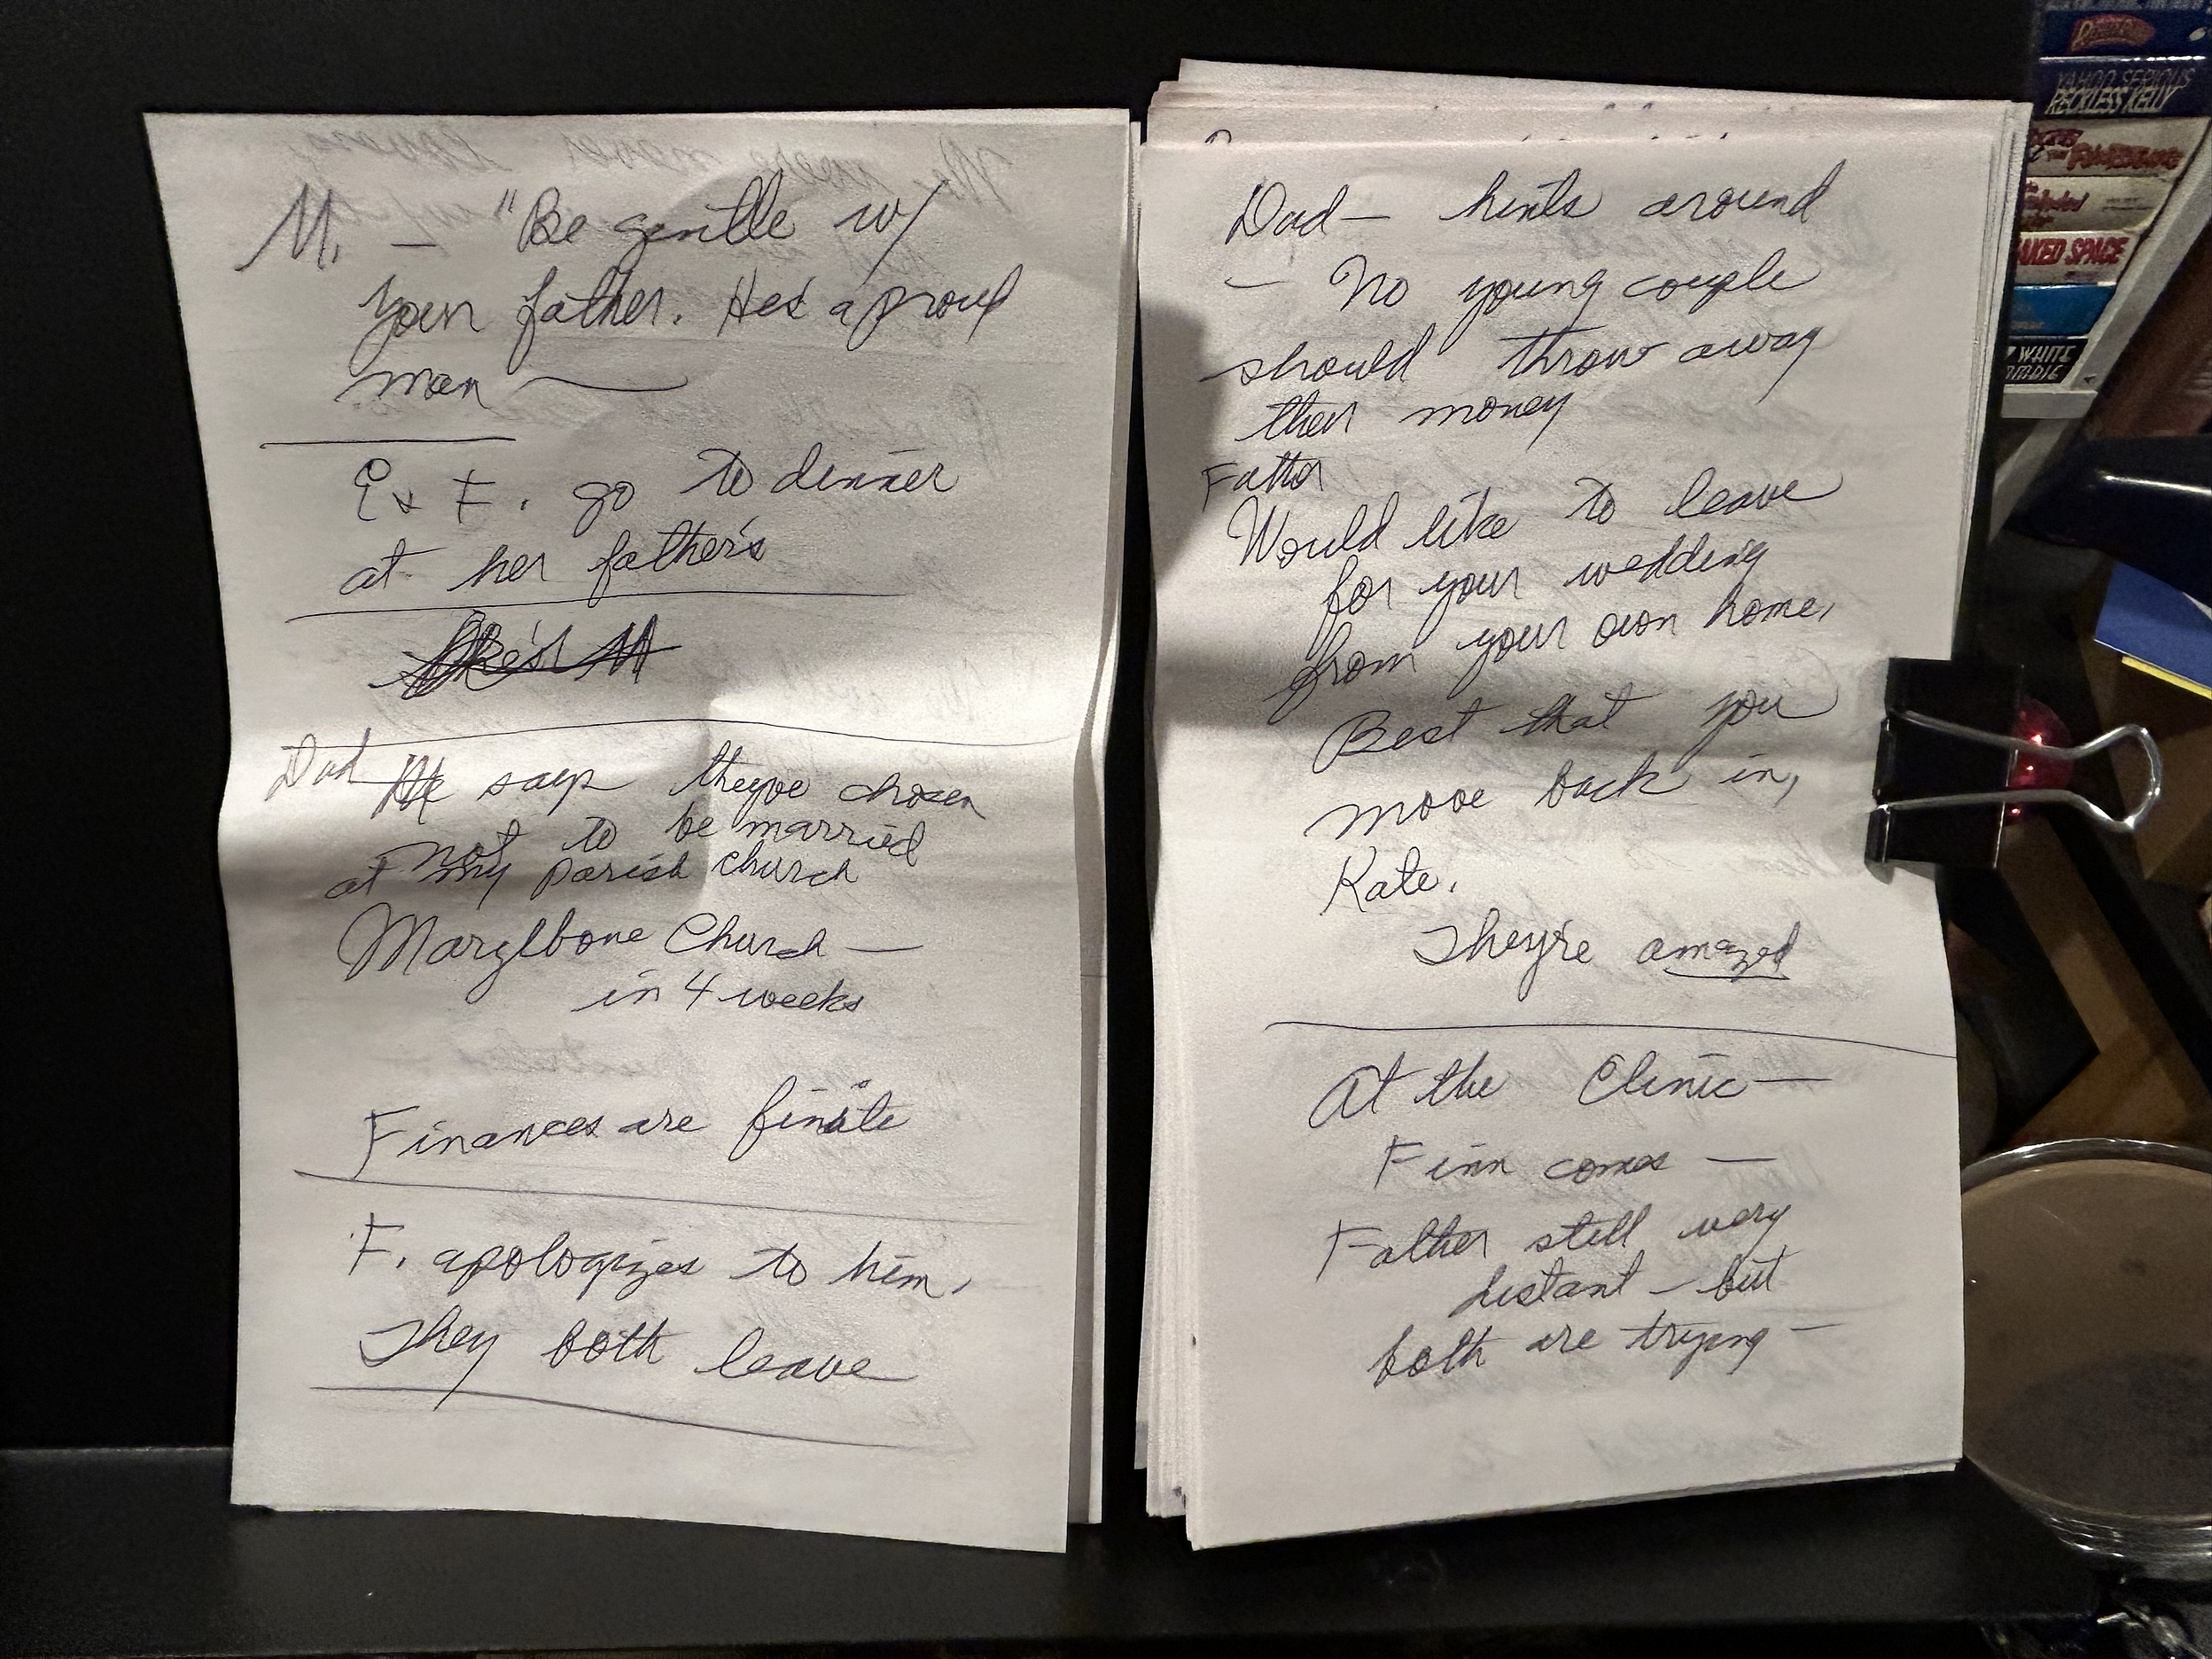 M. — "Be gentle w/
your father. He's a proud
man —
& F. go to dinner
at her father's
Dad He says they've chosen
not to be married
at my parish church
Marylbone Church —
in 4 weeks
Finances are finite
F. apologizes to him,
They both leave
Dad — hints around
— No young couple
should throw away
their money
Father
Would like to leave
for your wedding
from your own home,
Best that you
move back in,
Kate.
They're amazed
At the Clinic —
Finn comes —
Father still very
distant — but
both are trying —
YAHOO SERIOUS
RECKLESS KELLY
NAKED SPACE
WHITE